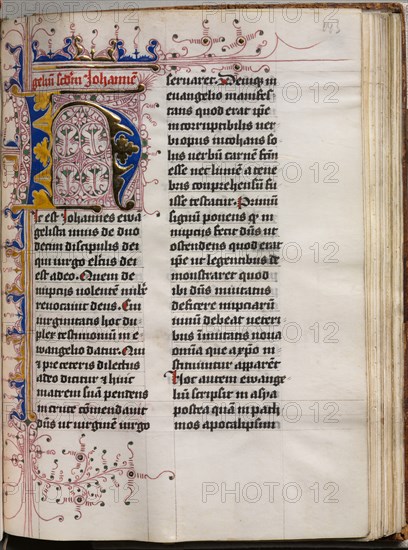 geliū scdm Johannē
Hic est Johannes ewā
gelista unus de duo
decim discipulis dei
qui virgo electus dei
est a deo. Quem de
nuptijs volentē nubē
revocavit deus. Cui
virginitatis hoc du
plex testimoniū in e
wangelio datur. Qui
et pre ceteris dilectus
a deo dicitur et huic
matrem suā pendens
in cruce cōmendavit
dn̄s ut virginē virgo
servaret. Deniq; in
evangelio manifes
tans quod erat ip̄e
incorruptibilis ver
bi opus inchoans so
lus verbū carnē fcm̄
esse nec lumē a tene
bris conprehensū fu
isse testatur. Primū
signū ponens qd in
nuptijs fecit dn̄s ut
ostendens quod erat
ip̄e ut legentibus de
monstraret quod
ubi dn̄s invitatus
deficere nuptiarū
vinū debeat veteri
bus inmutatis nova
omnia que a xp̄o in
stituuntur apparēt
Hoc autem ewange
liū scripsit in asya
postea quā in path
mos apocalipsim
PHOTO 12